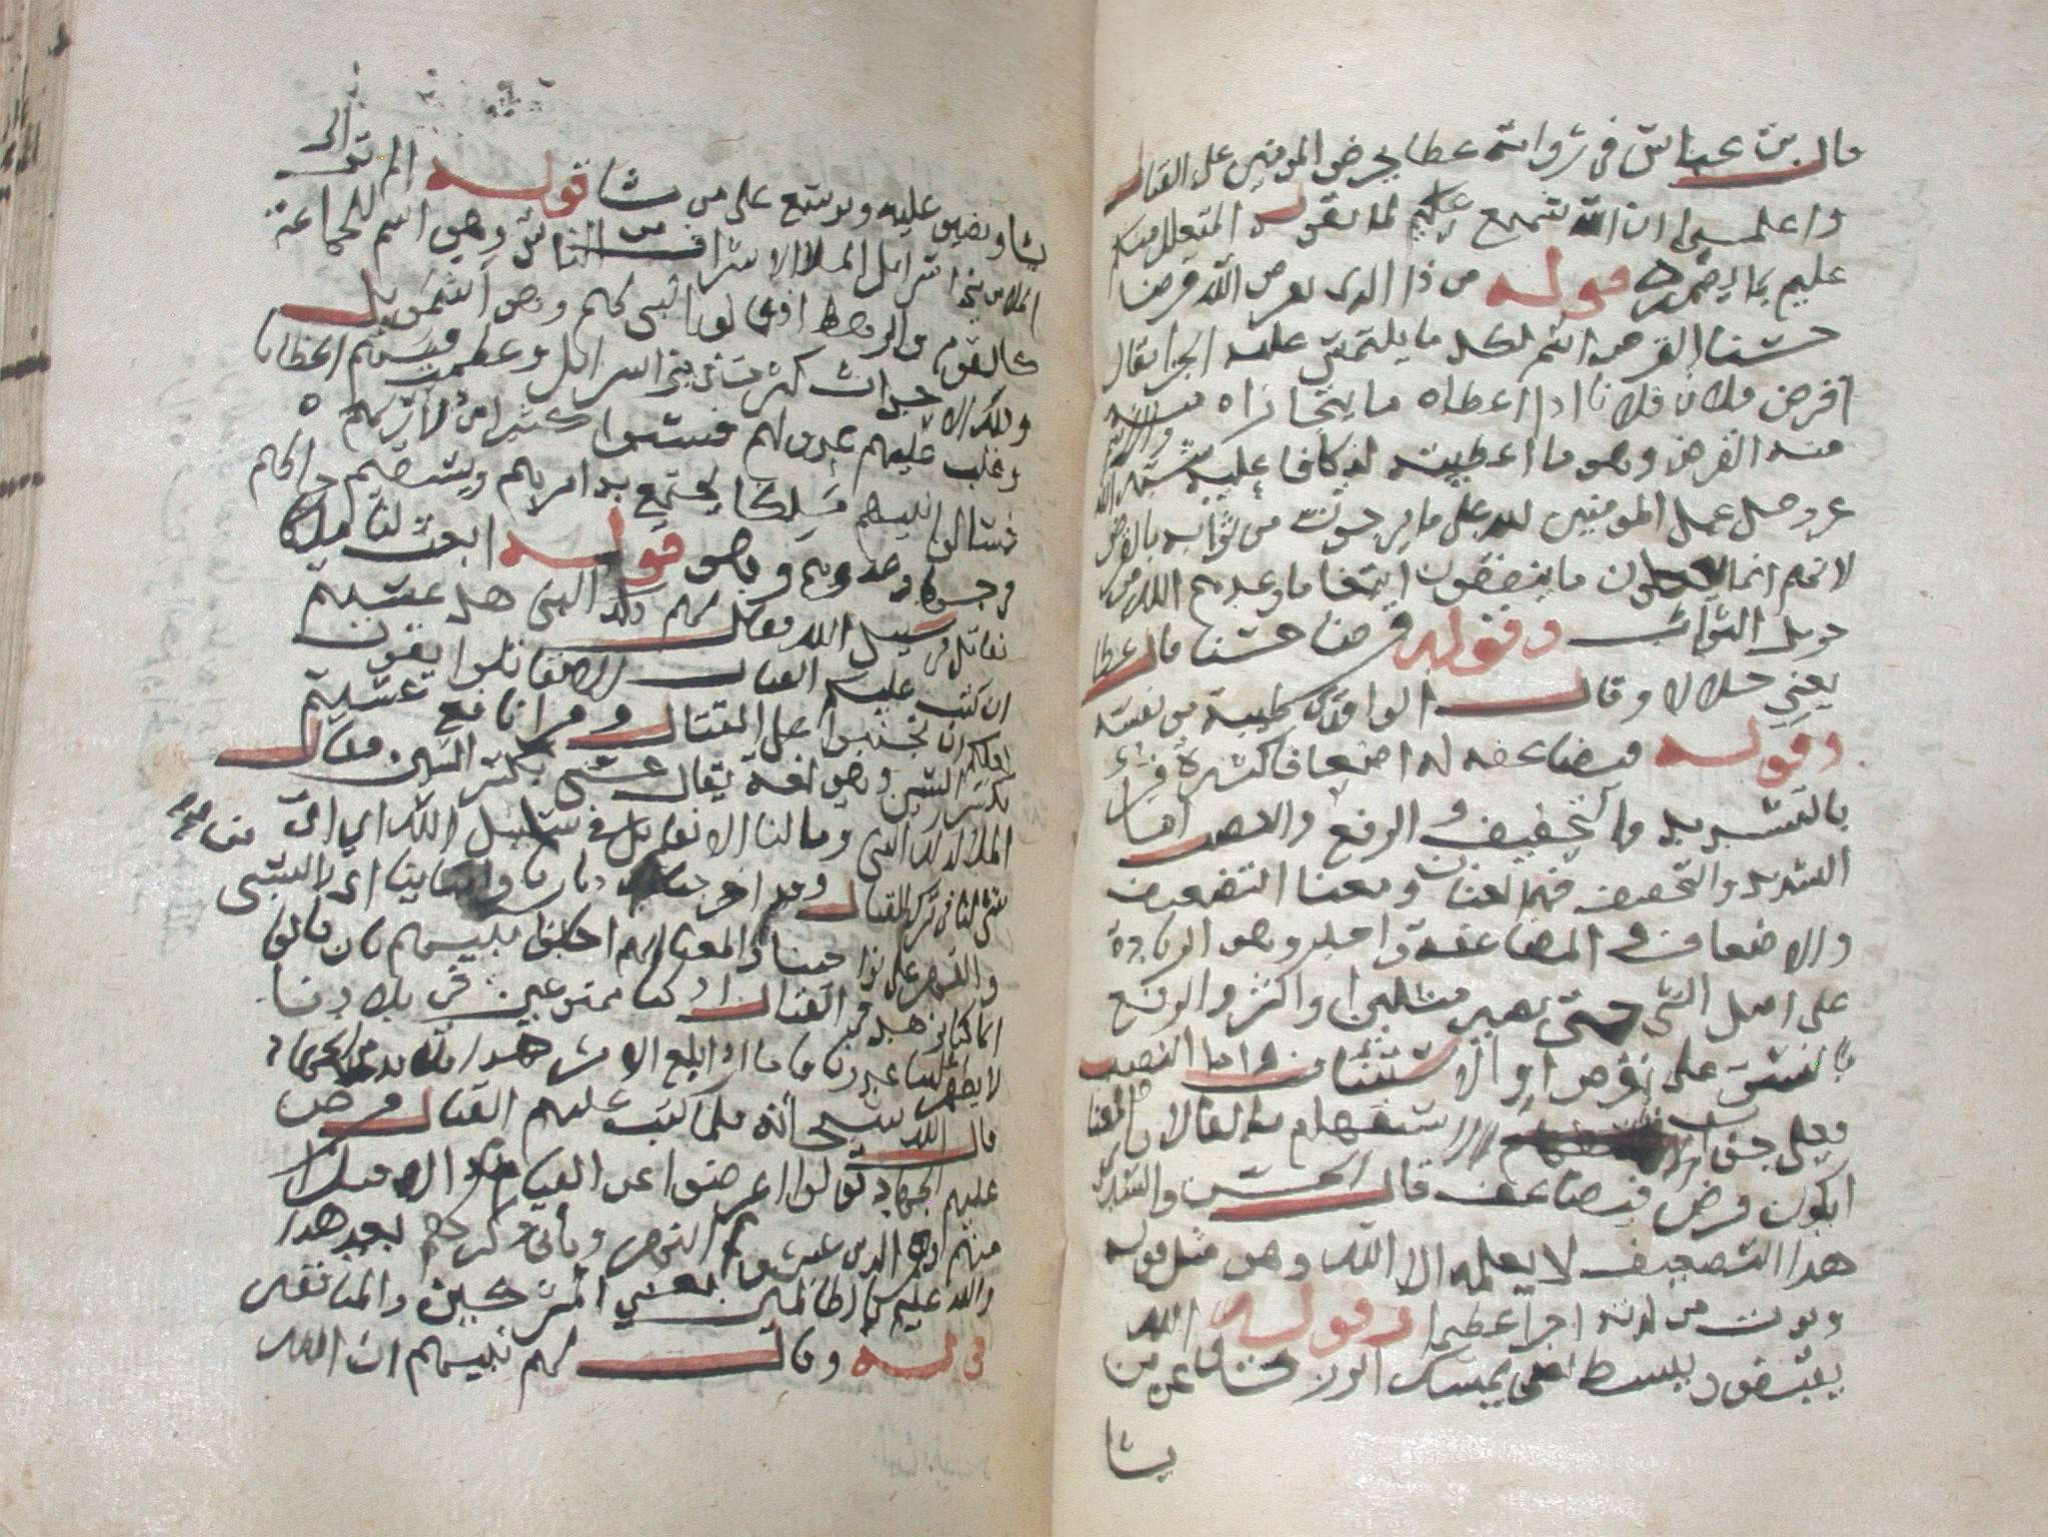 قال بن عباس في رواية عطا يحرض المومنين على القتال
واعلموا ان الله سميع عليم لما يقول المتعلل منكم
عليم بما يضمره قوله من ذا الذي يقرض الله قرضا
حسنا القرض اسم لكل ما يلتمس عليه الجزا يقال
اقرض فلان فلانا اذا اعطاه ما يتجازاه منه والاسم
منه القرض وهو ما اعطيته لتكافا عليه شبه الله
عز وجل عمل المومنين لله على ما يرجون من ثوابه بالقرض
لانهم انما ما ينفقون ابتغا ما وعدهم الله من
جزيل الثواب وقوله قرضا حسنا قال عطا
يعني حلالا وقال الواقدي طيبة من نفسه
وقوله فيضاعفه له اضعافا كثيرة قرئ
بالتشديد والتخفيف والرفع والنصب اما
التشديد والتخفيف فهما لغتان ومعنا التضعيف
والاضعاف والمضاعفة واحد وهو الزيادة
على اصل الشي حتى يصير مثلين او اكثر والرفع
بالنسق على يقرض او الاستئناف واما النصب
فعلى جواب الاستفهام بالفا لان المعنا
ايكون قرض فيضاعف قال الحسن والسدي
هذا التضعيف لا يعلمه الا الله وهو مثل قوله
ويوت من لدنه اجرا عظيما وقوله الله
يقبض ويبسط اي يمسك الرزق عن من
يشا
يشا ويضيق عليه ويوسع على من يشا قوله الم تر الى
الملا من بني اسرايل الملا الاشراف من الناس وهو اسم للجماعة
كالقوم والرهط اذ قالوا لنبي لهم وهو اشمويل
وذلك ان الاحداث كثرت في بني اسرايل وعظمت فيهم الخطايا
وغلب عليهم عدو لهم فسبوا كثيرا من ذراريهم
فسالوا نبيهم ملكا يجتمع به امرهم ويستقيم حالهم
في جهاد عدوهم وهو قوله ابعث لنا ملكا
نقاتل في سبيل الله فقال لهم ذلك النبي هل عسيتم
ان كتب عليكم القتال الا تقاتلوا يقول
لعلكم ان تجبنوا عن القتال وقرا نافع عسيتم
بكسر السين وهي لغة يقال عسى بكسر السين فقال
الملا لذلك النبي وما لنا الا نقاتل في سبيل الله اي اي
شي لنا في ترك القتال وقد اخرجنا من ديارنا وابناينا اي بالسبي
والقهر على نواحينا والمعنا انهم اجابوا نبيهم بان قالوا
انما كنا نزهد في القتال اذ كنا ممنوعين في بلادنا
لا يظهر علينا عدونا فاما اذا بلغ الامر هذا فلا بد من الجهاد
قال الله سبحانه فلما كتب عليهم القتال فرض
عليهم الجهاد تولوا اعرضوا عن القيام به الا قليلا
منهم وهم الذين عبروا النهر وياتي ذكرهم بعد هذا
والله عليم بالظالمين يعني المشركين والمنافقين
قوله وقال لهم نبيهم ان الله